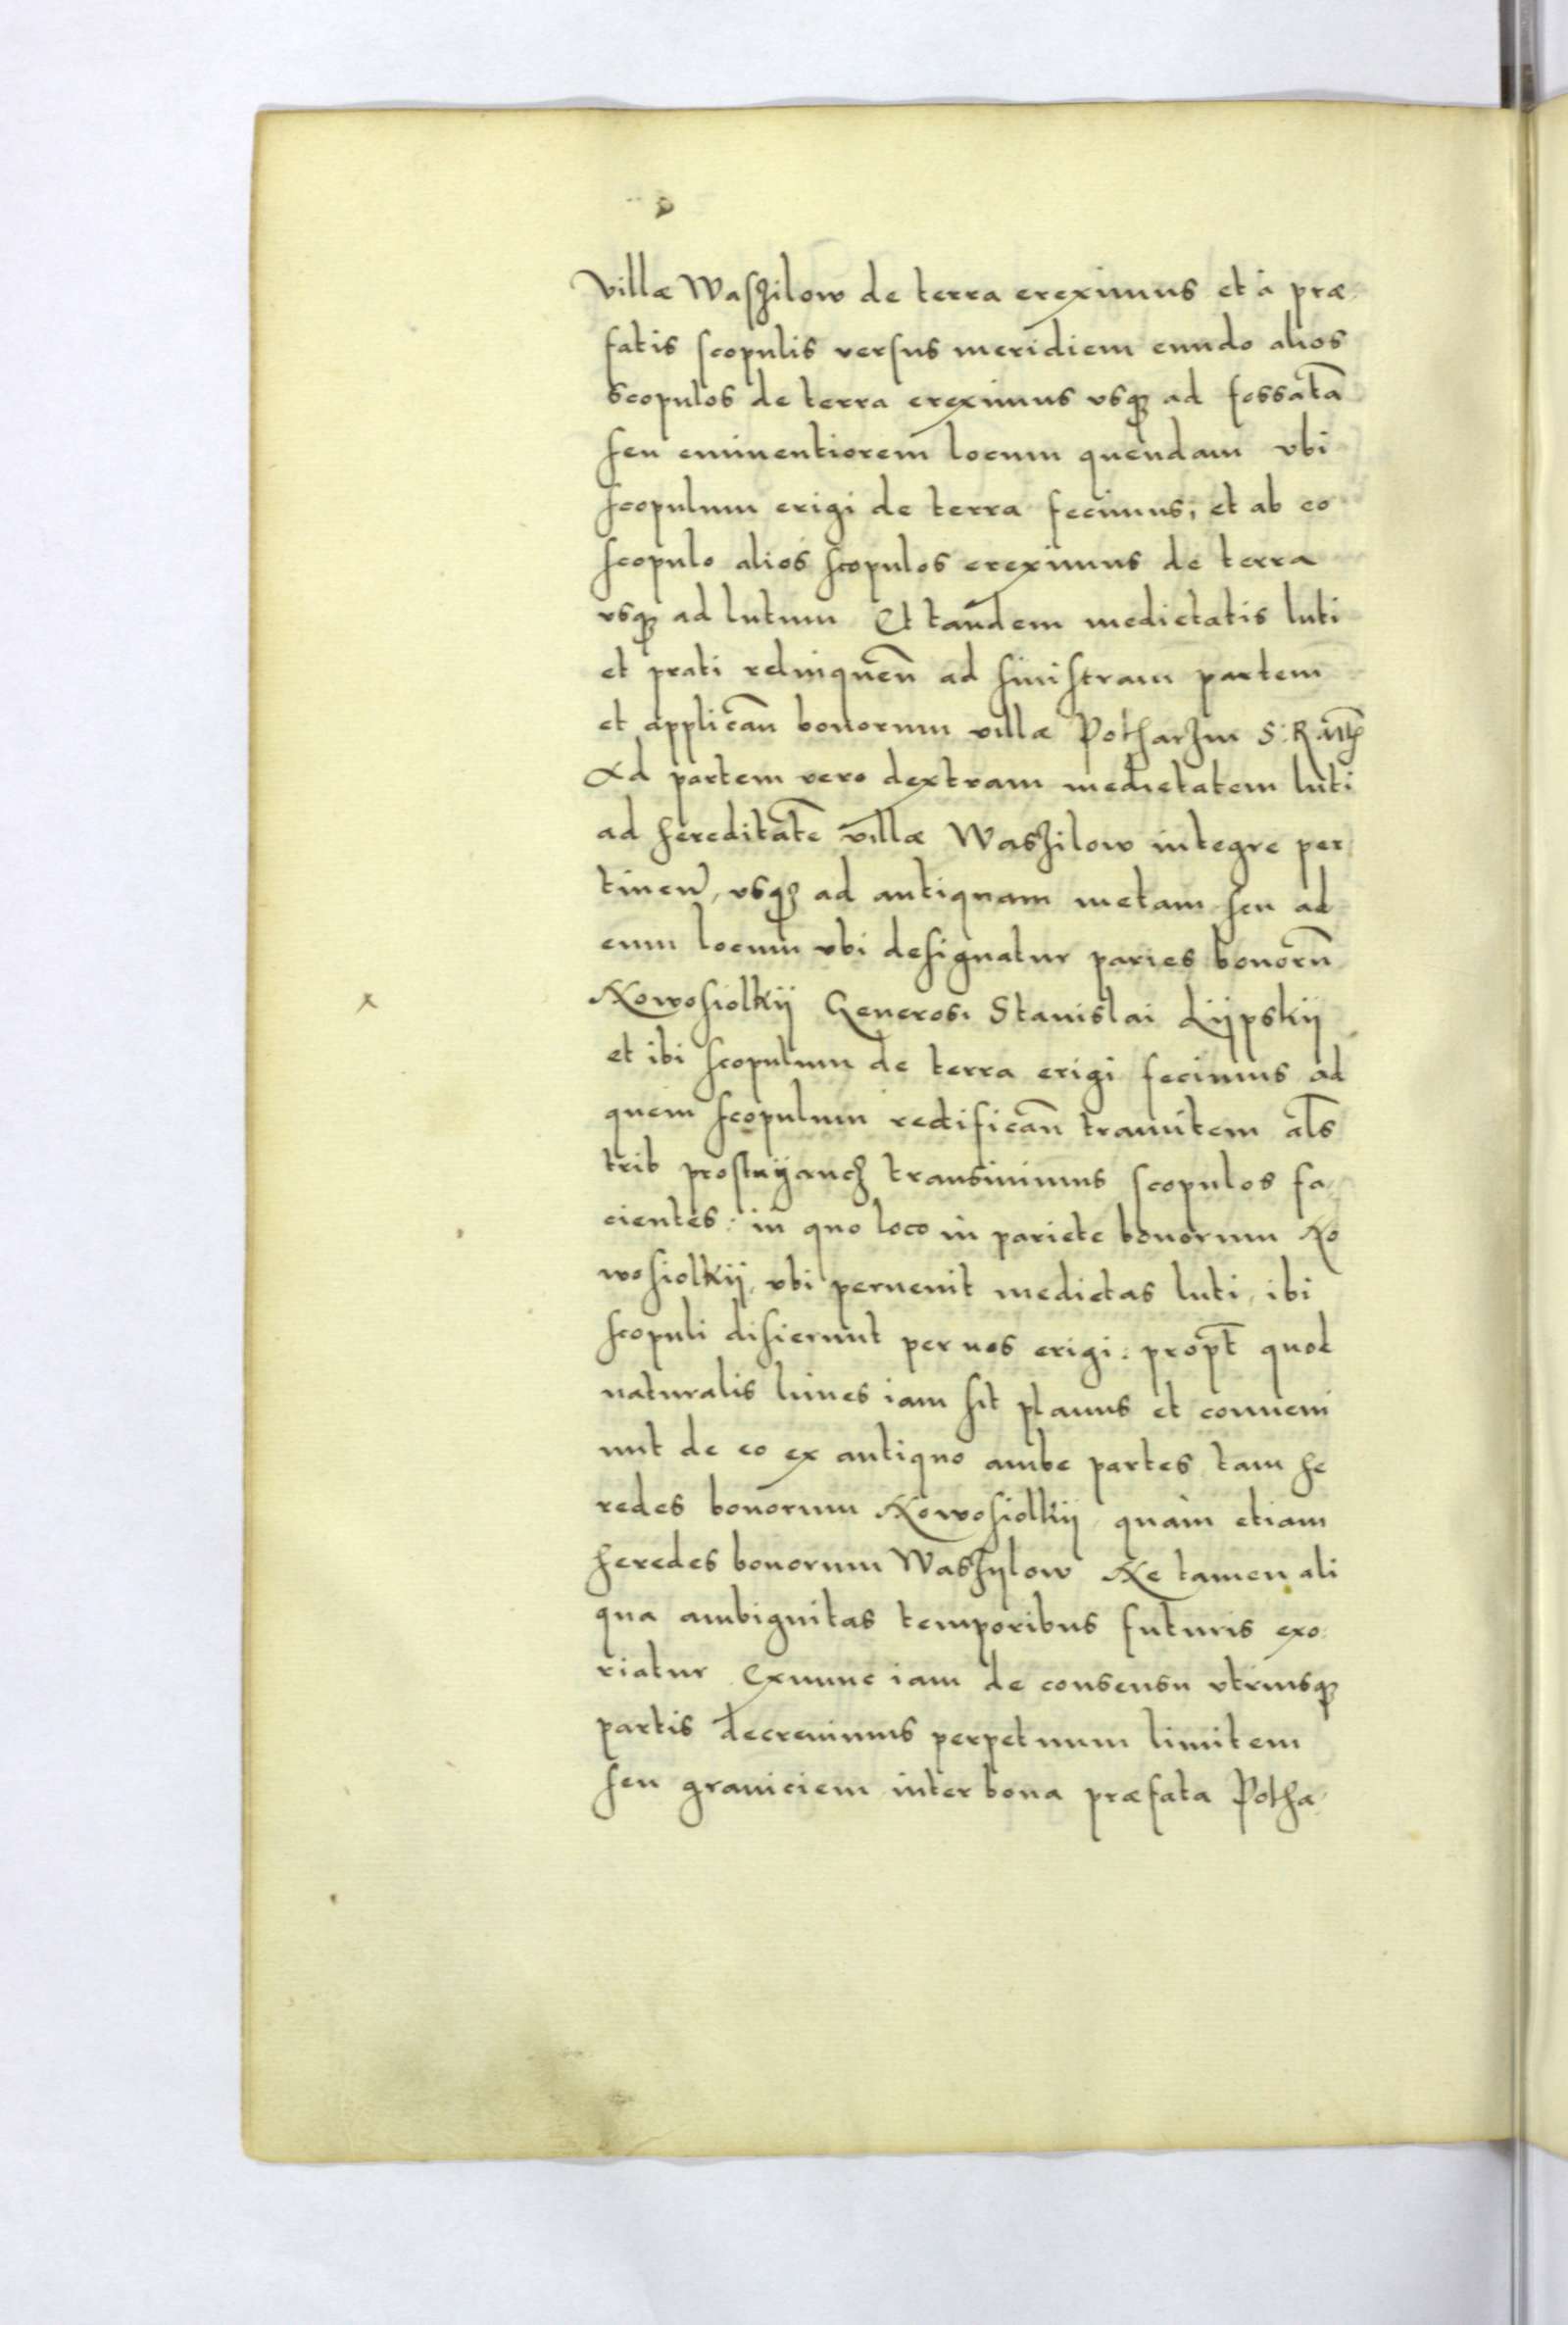 villæ Waszilow de terra ereximus et à præ
fatis scopulis versus meridiem eundo alios
scopulos de terra ereximus vsqꝫ ad fossatā
seu eminentiorem locum quendam vbi
scopulum erigi de terra fecimus, et ab eo
scopulo alios scopulos ereximus de terra
vsqꝫ ad lutum Et tandem medietatis luti
et prati relinquen̄ ad sinistram partem
et applican̄ bonorum villæ Potharzin S: R:
Ad partem vero dextram medietatem luti
ad hereditatē villæ Waszilow integre per
tinen̄, vsqꝫ ad antiquam metam seu ad
eum locum vbi designatur paries bonorū
x Nowosiolkij Generosi Stanislai Lijpskij
et ibi scopulum de terra erigi fecimus ad
quem scopulum redifican̄ tramitem al̄s
trib prostuijancz transiuimus scopulos fa
cientes: in quo loco in pariete bonorum No
wosiolkij, vbi peruenit medietas luti, ibi
scopuli disierunt per nos erigi: propt̄ quod
naturalis limes iam sit planus et conueni
unt de eo ex antiquo ambe partes tam he
redes bonorum Nowosiolkij quàm etiam
heredes bonorum Waszylow Ne tamen ali
qua ambiguitas temporibus futuris exo
riatur Exnunc iam de consensu vtriusqꝫ
partis decreuimus perpetuum limitem
seu graniciem inter bona præfata Potha